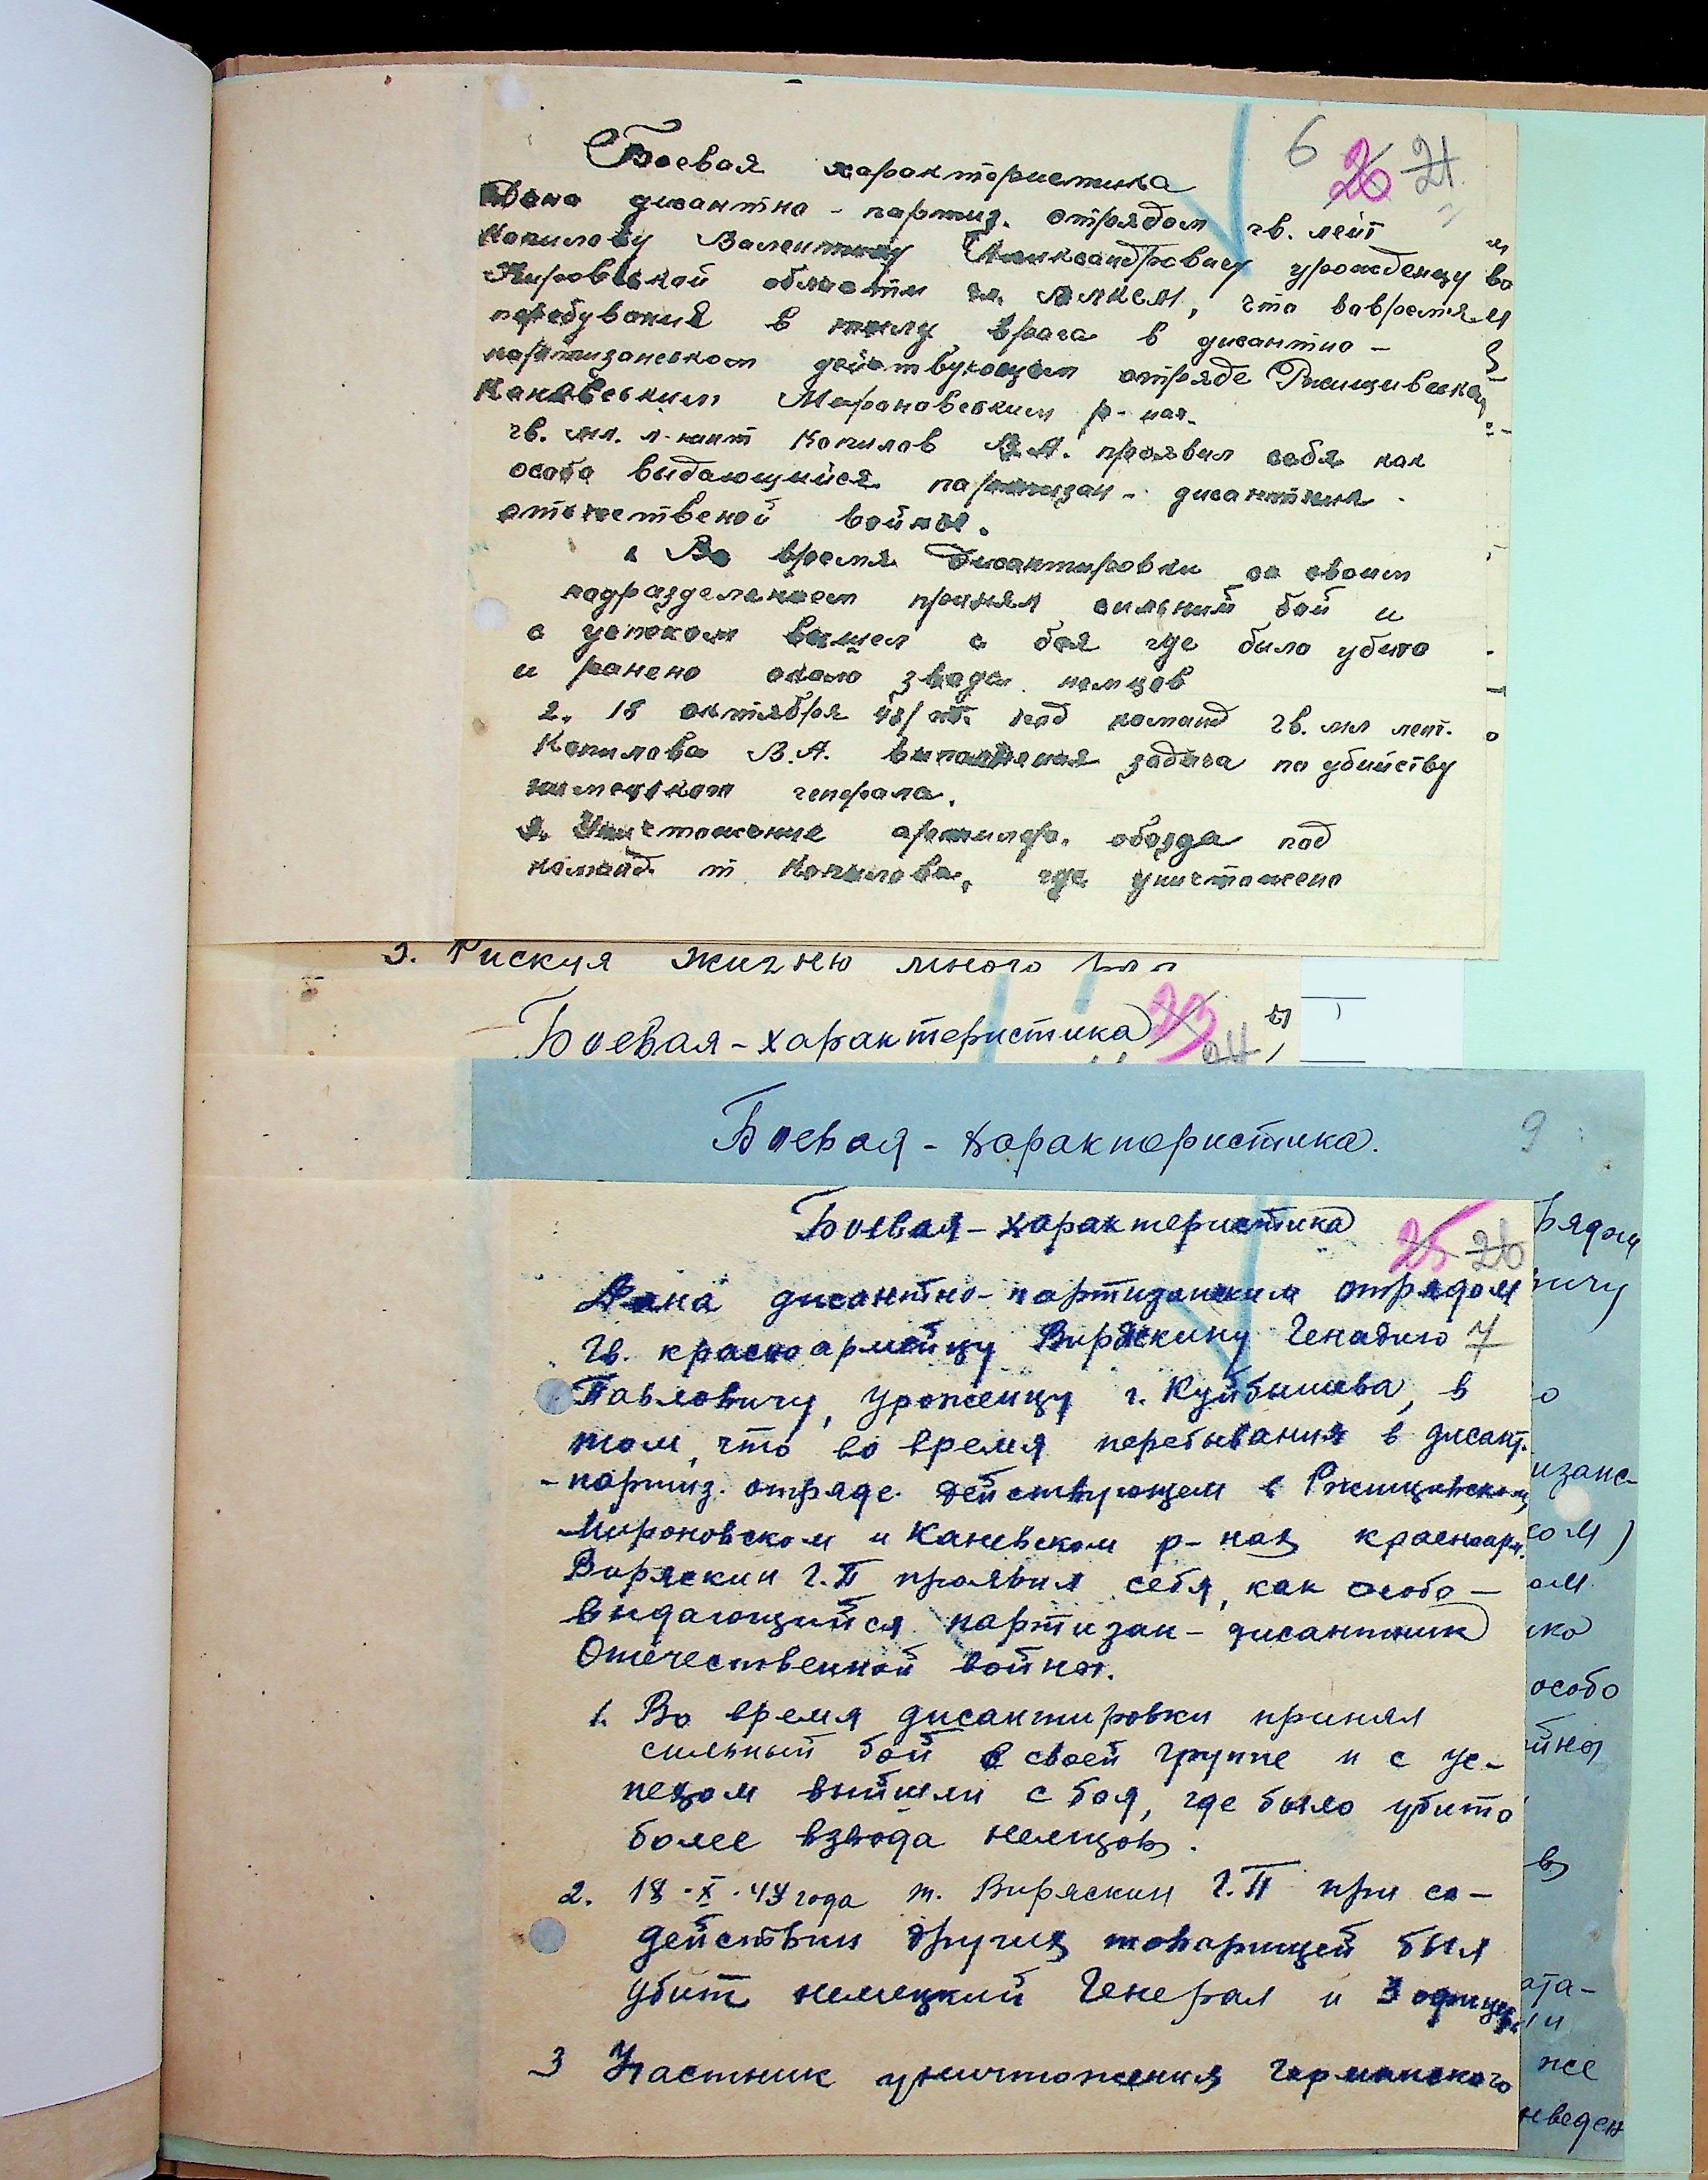 6 26 21
Боевая характеристика
Дана дисантно-партиз. отрядом гв. лейт
Копилову Валентину Александровичу урожденцу
Кировской области ст. , что вовремя
пребувания в тилу врага в дисантно-
партизанском действующем отряде Ржищивском
Каневским Мироновским р-нах.
гв. мл. л-нант Копилов В.А. проявил себя как
особо выдающийся партизан-дисантник
отечественой войны.
1 Во время дисантировки со своим
подразделением принял сильний бой и
с успехом вышел с боя где било убито
и ранено около звода немцов
2. 18 октября 43/ под команд гв. мл лейт.
Копилова В.А. виполненая задача по убийству
немецкого генерала.
3. Уничтожение артилер. обозда под
команд. т Копилова, где уничтожено
3. Рискуя жизню много
Боевая-характеристика 23 24
Боевая-характеристика. 9
Боевая-характеристика 25 26
Дана дисантно-партизанским отрядом
гв. красноармейцу Виряскину Генадию 7
Павловичу, уроженцу г. Куйбышева, в
том, что во время перебывания в дисант.
-партиз. отряде действующем в Ржищевском,
Мироновском и Каневском р-нах красноарм.
Виряскин Г.П проявил себя, как особо-
выдающийся партизан-дисантник
Отечественной войны.
1. Во время дисантировки принял
сильный бой в своей группе и с ус-
пехом выйшли с боя, где было убито
более взвода немцов.
2. 18.X.43 года т. Виряскин Г.П при со-
действии других товарищей был
убит немецкий Генерал и 3 офицера
3 Участник уничтожения германского